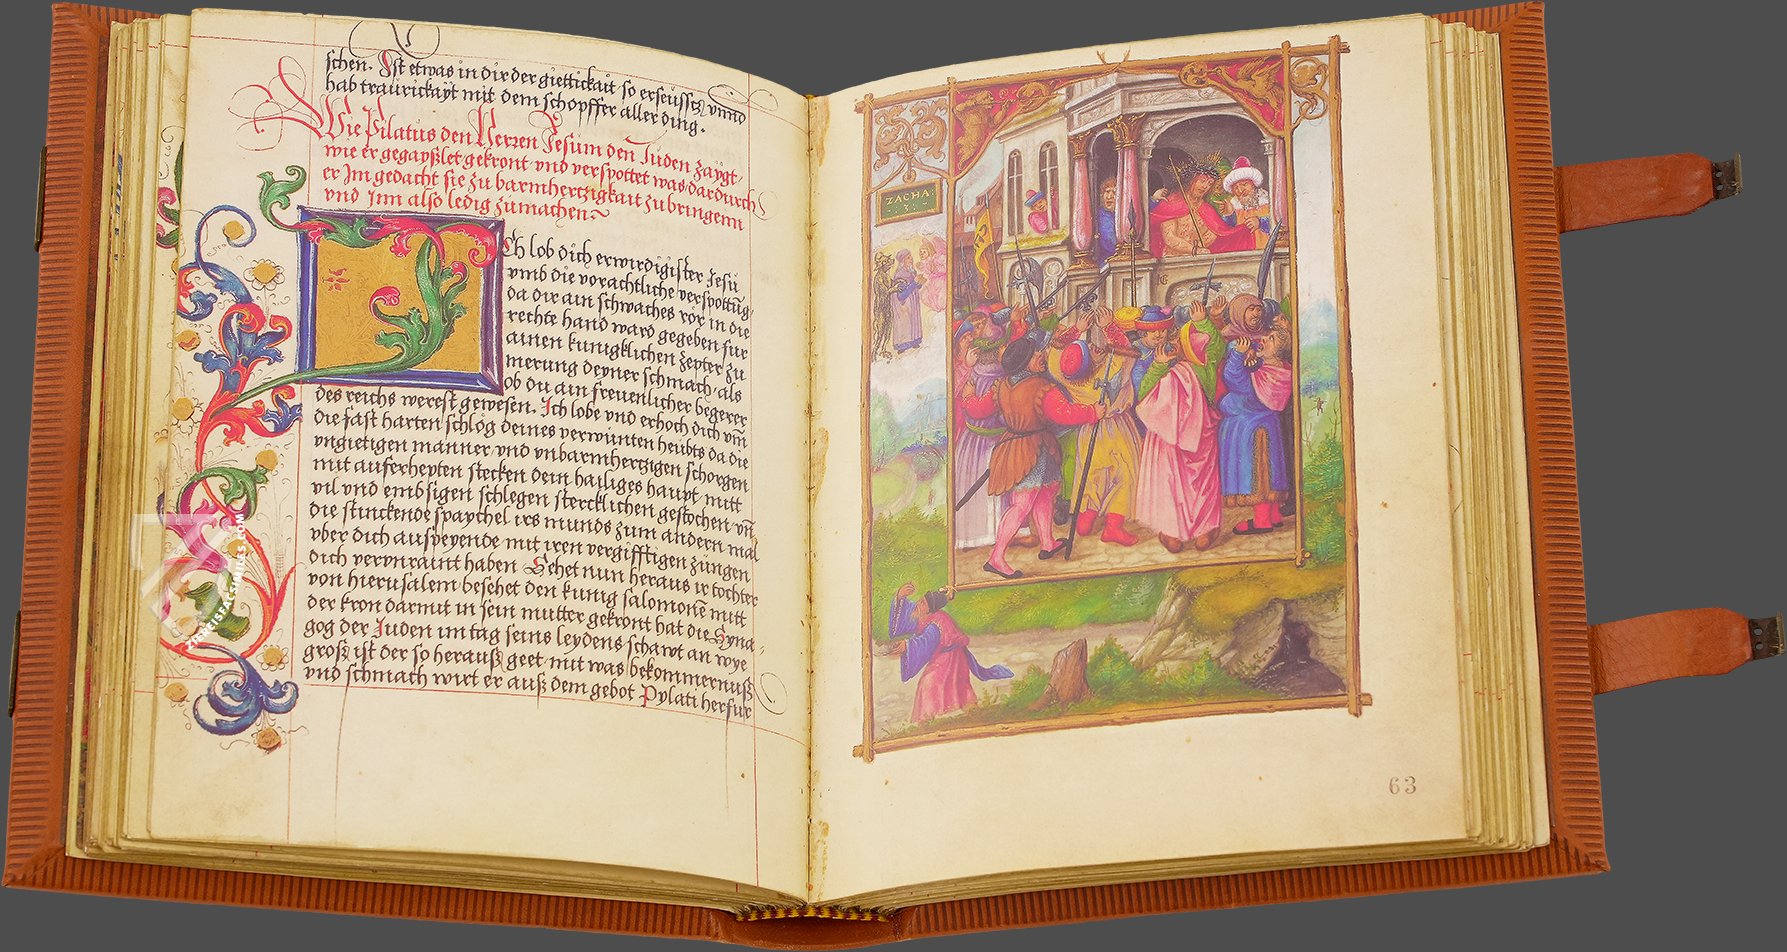 schen. Ist etwas in dir der giettickait so erseufftz vnnd
hab traurickayt mit dem schopffer aller ding.
Wie Pilatus den Herren Jesum den Juden zaygt,
wie er gegayßlet gekront vnd verspottet was, dardurch
er Im gedacht sie zu barmhertzigkait zubringenn
vnd Inn also ledig zumachen
Ich lob dich erwirdigister Jesu
vmb die vorachtliche verspottūg,
da dir ain schwaches ror in die
rechte hand ward gegeben fur
ainen kunigklichen zepter zu
merung deyner schmach, als
ob du ain freuenlicher begerer
des reichs werest gewesen. Ich lobe vnd erhoch dich vm̄
die fast harten schlög deines verwunten heubts da die
vngietigen manner vnd vnbarmhertzigen schorgen
mit auferhepten stecken dein hailiges haupt mitt
vil vnd embsigen schlegen stercklichen gestochen, vn̄
die stinckende spaychel irs munds zum andern mal
vber dich auspeyende mit iren vergifftigen züngen
dich vervnraint haben Sehet nun heraus ir tochter
von hierusalem besehet den kunig salomonē mitt
der kron darmit in sein mutter gekront hat die Syna-
gog der Juden im tag seins leydens schawt an wye
groß ist der so herauß geet, mit was bekommernuß
vnd schmach wirt er auß dem gebot Pylati herfur
ZACHA:
3.
63
ZIEREISFACSIMILES.COM